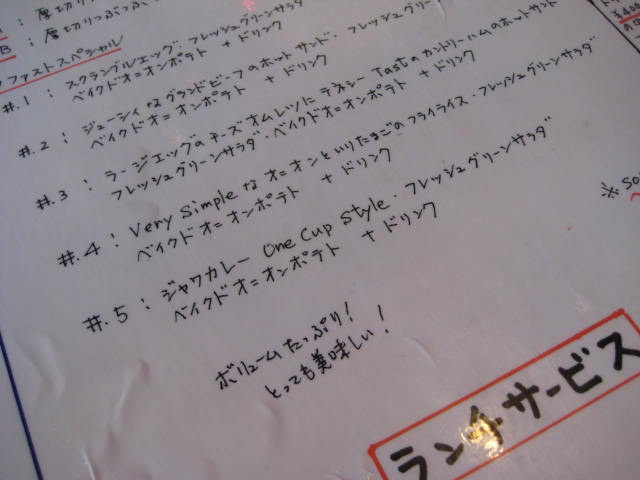 : 厚切り
B : 厚切りぶっ
ファストスペシャル
#.1 : スクランブルエッグ・フレッシュグリーンサラダ
ベイクドオニオンポテト + ドリンク
#.2 : ジューシィなグランドビーフのホットサンド・フレッシュグリー
ベイクドオニオンポテト + ドリンク
#.3 : ラージエッグのチーズオムレツにテネシーTasteのカントリーハムのホットサンド
フレッシュグリーンサラダ・ベイクドオニオンポテト + ドリンク
#.4 : Very Simpleなオニオンといりたまごのフライライス・フレッシュグリーンサラダ
ベイクドオニオンポテト + ドリンク
#.5 : ジャワカレー One Cup Style・フレッシュグリーンサラダ
ベイクドオニオンポテト + ドリンク
ボリュームたっぷり!
とっても美味しい!
※ So
ランチサービス